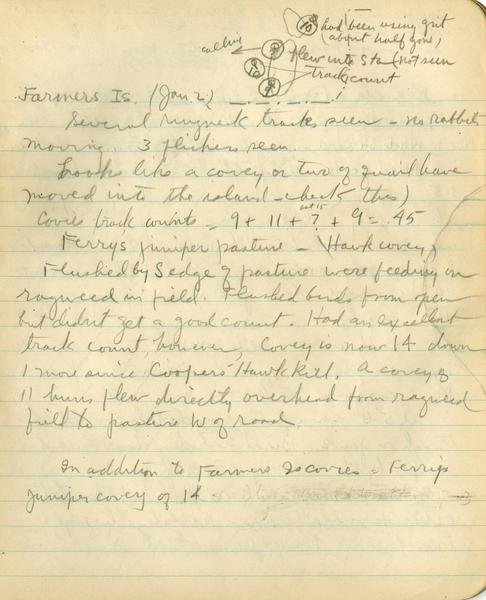 10 had been using grit
(about half gone)
calling
9 flew into Sta (not seen
10 track count
9
Farmers Is. (Jan. 2)
Several ringneck tracks seen - no rabbits
moving. 3 flickers seen.
Looks like a covey or two of quail have
moved into the island - check this)
Covies track counts = 9 + 11 + ? + 9 = 45
Ferrys juniper pasture - Hawk covey
Flushed by S edge of pasture were feeding on
ragweed in field. Flushed birds from open
but didn't get a good count. Had an excellent
track count, however, Covey is now 14 down
1 more since Coopers Hawk kill. A covey of
11 huns flew directly overhead from ragweed
field to pasture W of road.
In addition to Farmers Is covies = Ferrys
juniper covey of 14